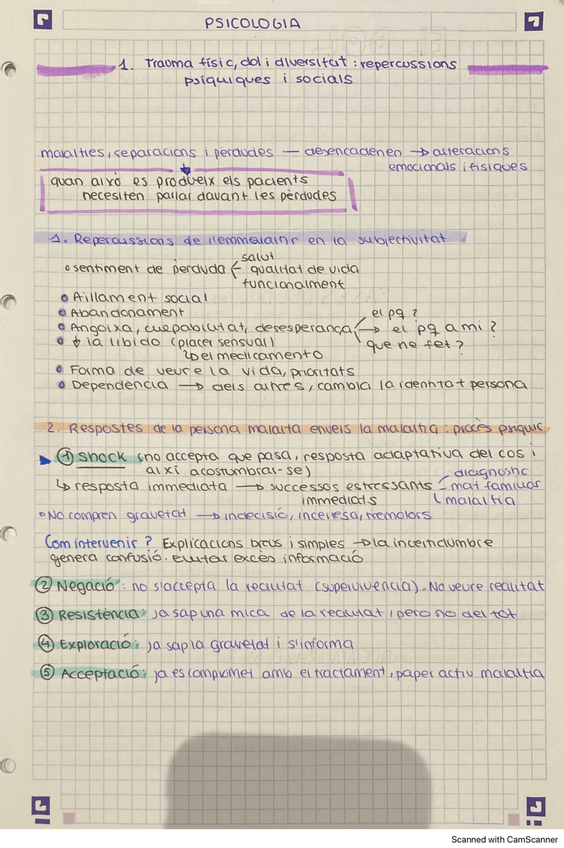 PSICOLOGIA
1. Trauma físic, dol i diversitat : repercussions
psíquiques i socials
malalties, separacions i pèrdudes — desencadenen → alteracions
emocionals i físiques
quan això es produeix els pacients
necesiten parlar davant les pèrdudes
1. Repercussions de l'emmalaltir en la subjectivitat
salut
sentiment de pèrduda qualitat de vida
funcionalment
Aillament social
Abandonament
el pq ?
Angoixa, culpabilitat, desesperança → el pq a mi ?
↓ la libido (placer sensual) que he fet ?
↳ del medicamento
Forma de veure la vida, prioritats
Dependència → dels altres, cambia la identitat persona
2. Respostes de la persona malalta enveis la malaltia : procès psíquic
① Shock (no accepta que pasa, resposta adaptativa del cos i
així acostumbrar-se)
diagnostic
↳ resposta immediata → successos estressants mat familiar
immediats malaltia
No compren gravetat → indecisió, incevesa, tremolors
Com intervenir ? Explicacions breus i simples → la incertidumbre
genera confusió. Evitar excès informació
② Negació : no s'accepta la realitat (supervivencia). No veure realitat
③ Resistència : ja sap una mica de la realitat, pero no del tot
④ Exploració : ja sap la gravetat i s'informa
⑤ Acceptació : ja es compromet amb el tractament, paper actiu malaltia
Scanned with CamScanner